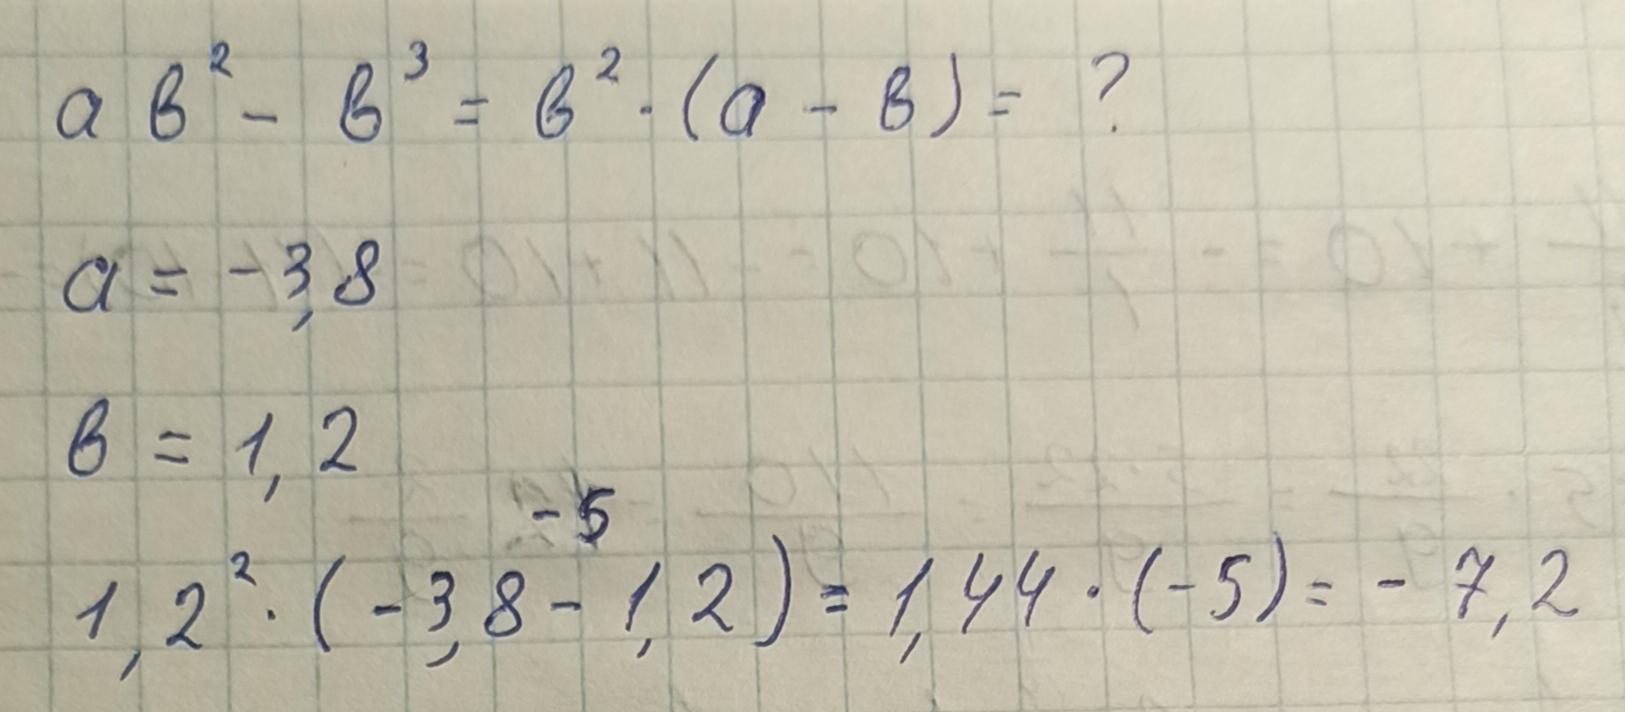 a в² - в³ = в² · (a - в) = ?
a = -3,8
в = 1,2
-5
1,2² · (-3,8 - 1,2) = 1,44 · (-5) = - 7,2